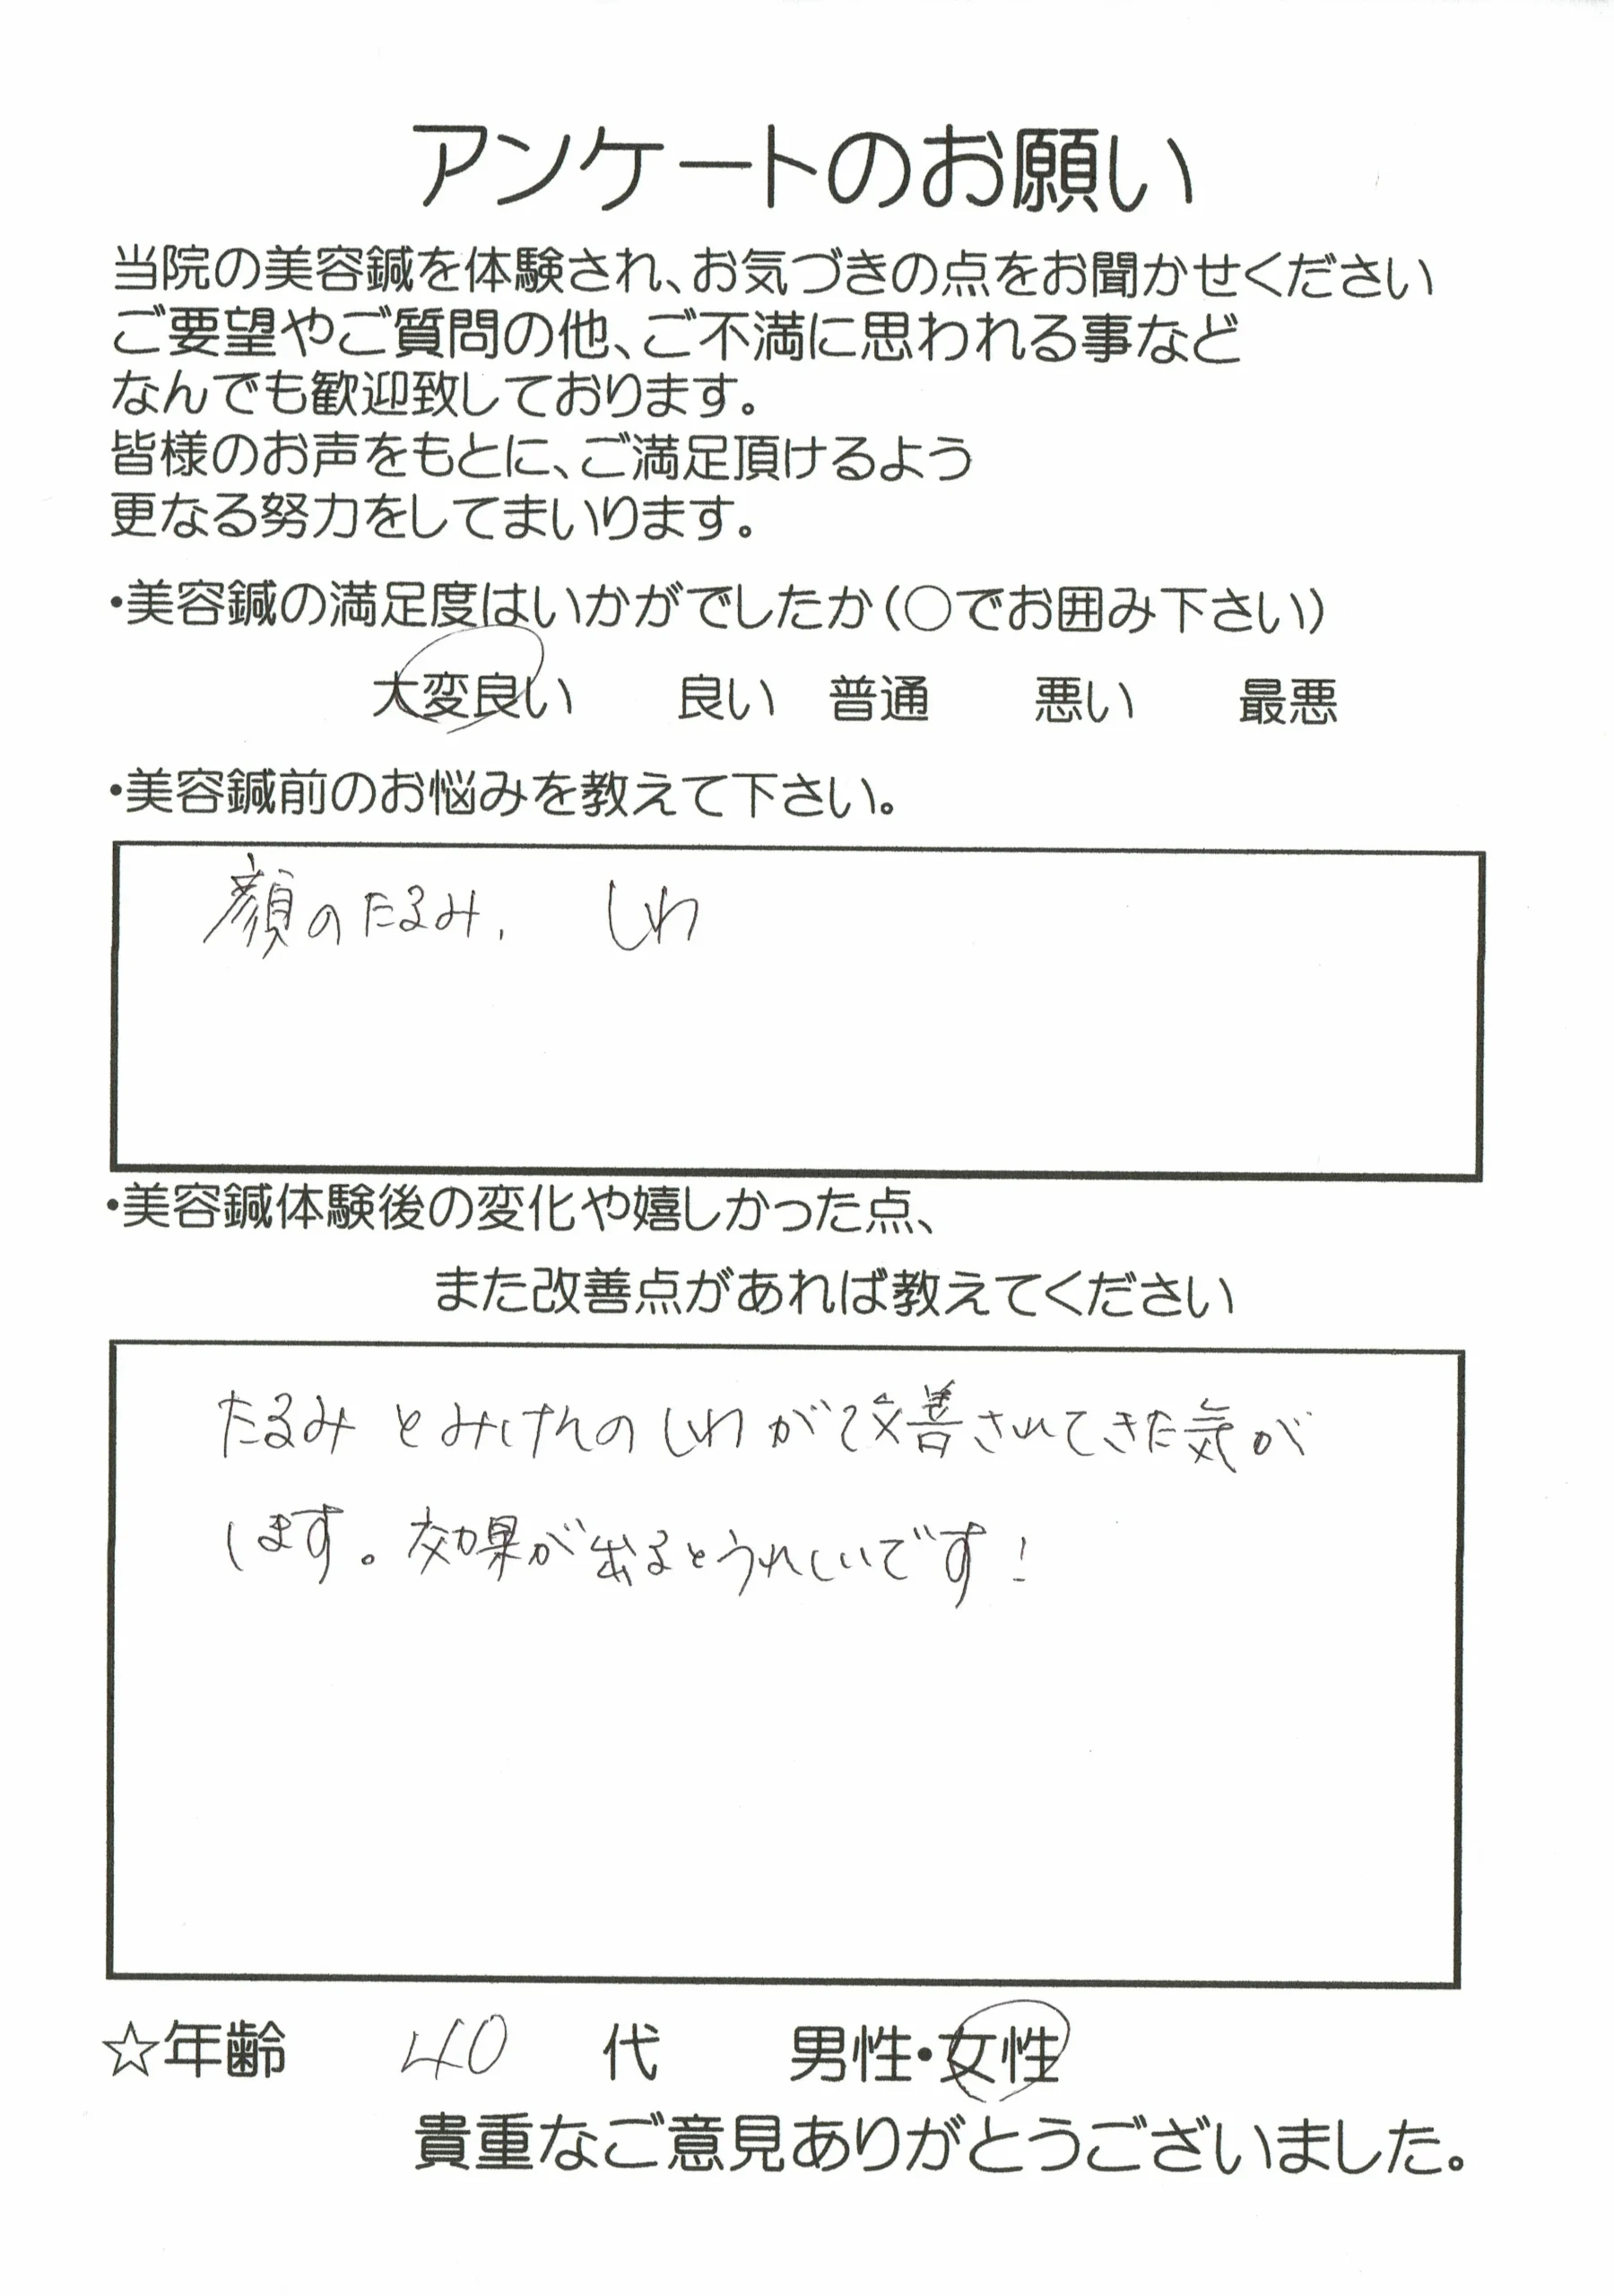 アンケートのお願い
当院の美容鍼を体験され、お気づきの点をお聞かせください
ご要望やご質問の他、ご不満に思われる事など
なんでも歓迎致しております。
皆様のお声をもとに、ご満足頂けるよう
更なる努力をしてまいります。
・美容鍼の満足度はいかがでしたか(○でお囲み下さい)
大変良い 良い 普通 悪い 最悪
・美容鍼前のお悩みを教えて下さい。
顔のたるみ、 しわ
・美容鍼体験後の変化や嬉しかった点、
また改善点があれば教えてください
たるみとみけんのしわが改善されてきた気が
します。効果が出るとうれしいです!
☆年齢 40 代 男性・女性
貴重なご意見ありがとうございました。